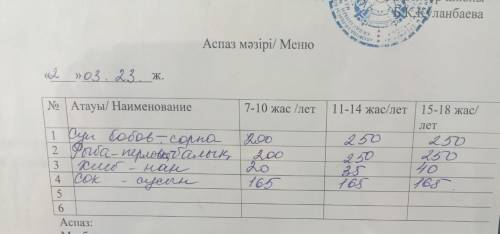 Б.К.Куланбаева
Аспаз мәзірі/ Меню
«2 »03. 23. ж.
№ Атауы/ Наименование 7-10 жас /лет 11-14 жас/лет 15-18 жас/лет
1 Суп бобов - сорпа 200 250 250
2 Рыба - балық 200 250 250
3 Хлеб - нан 20 35 40
4 Сок - сусын 165 165 165
5
6
Аспаз: